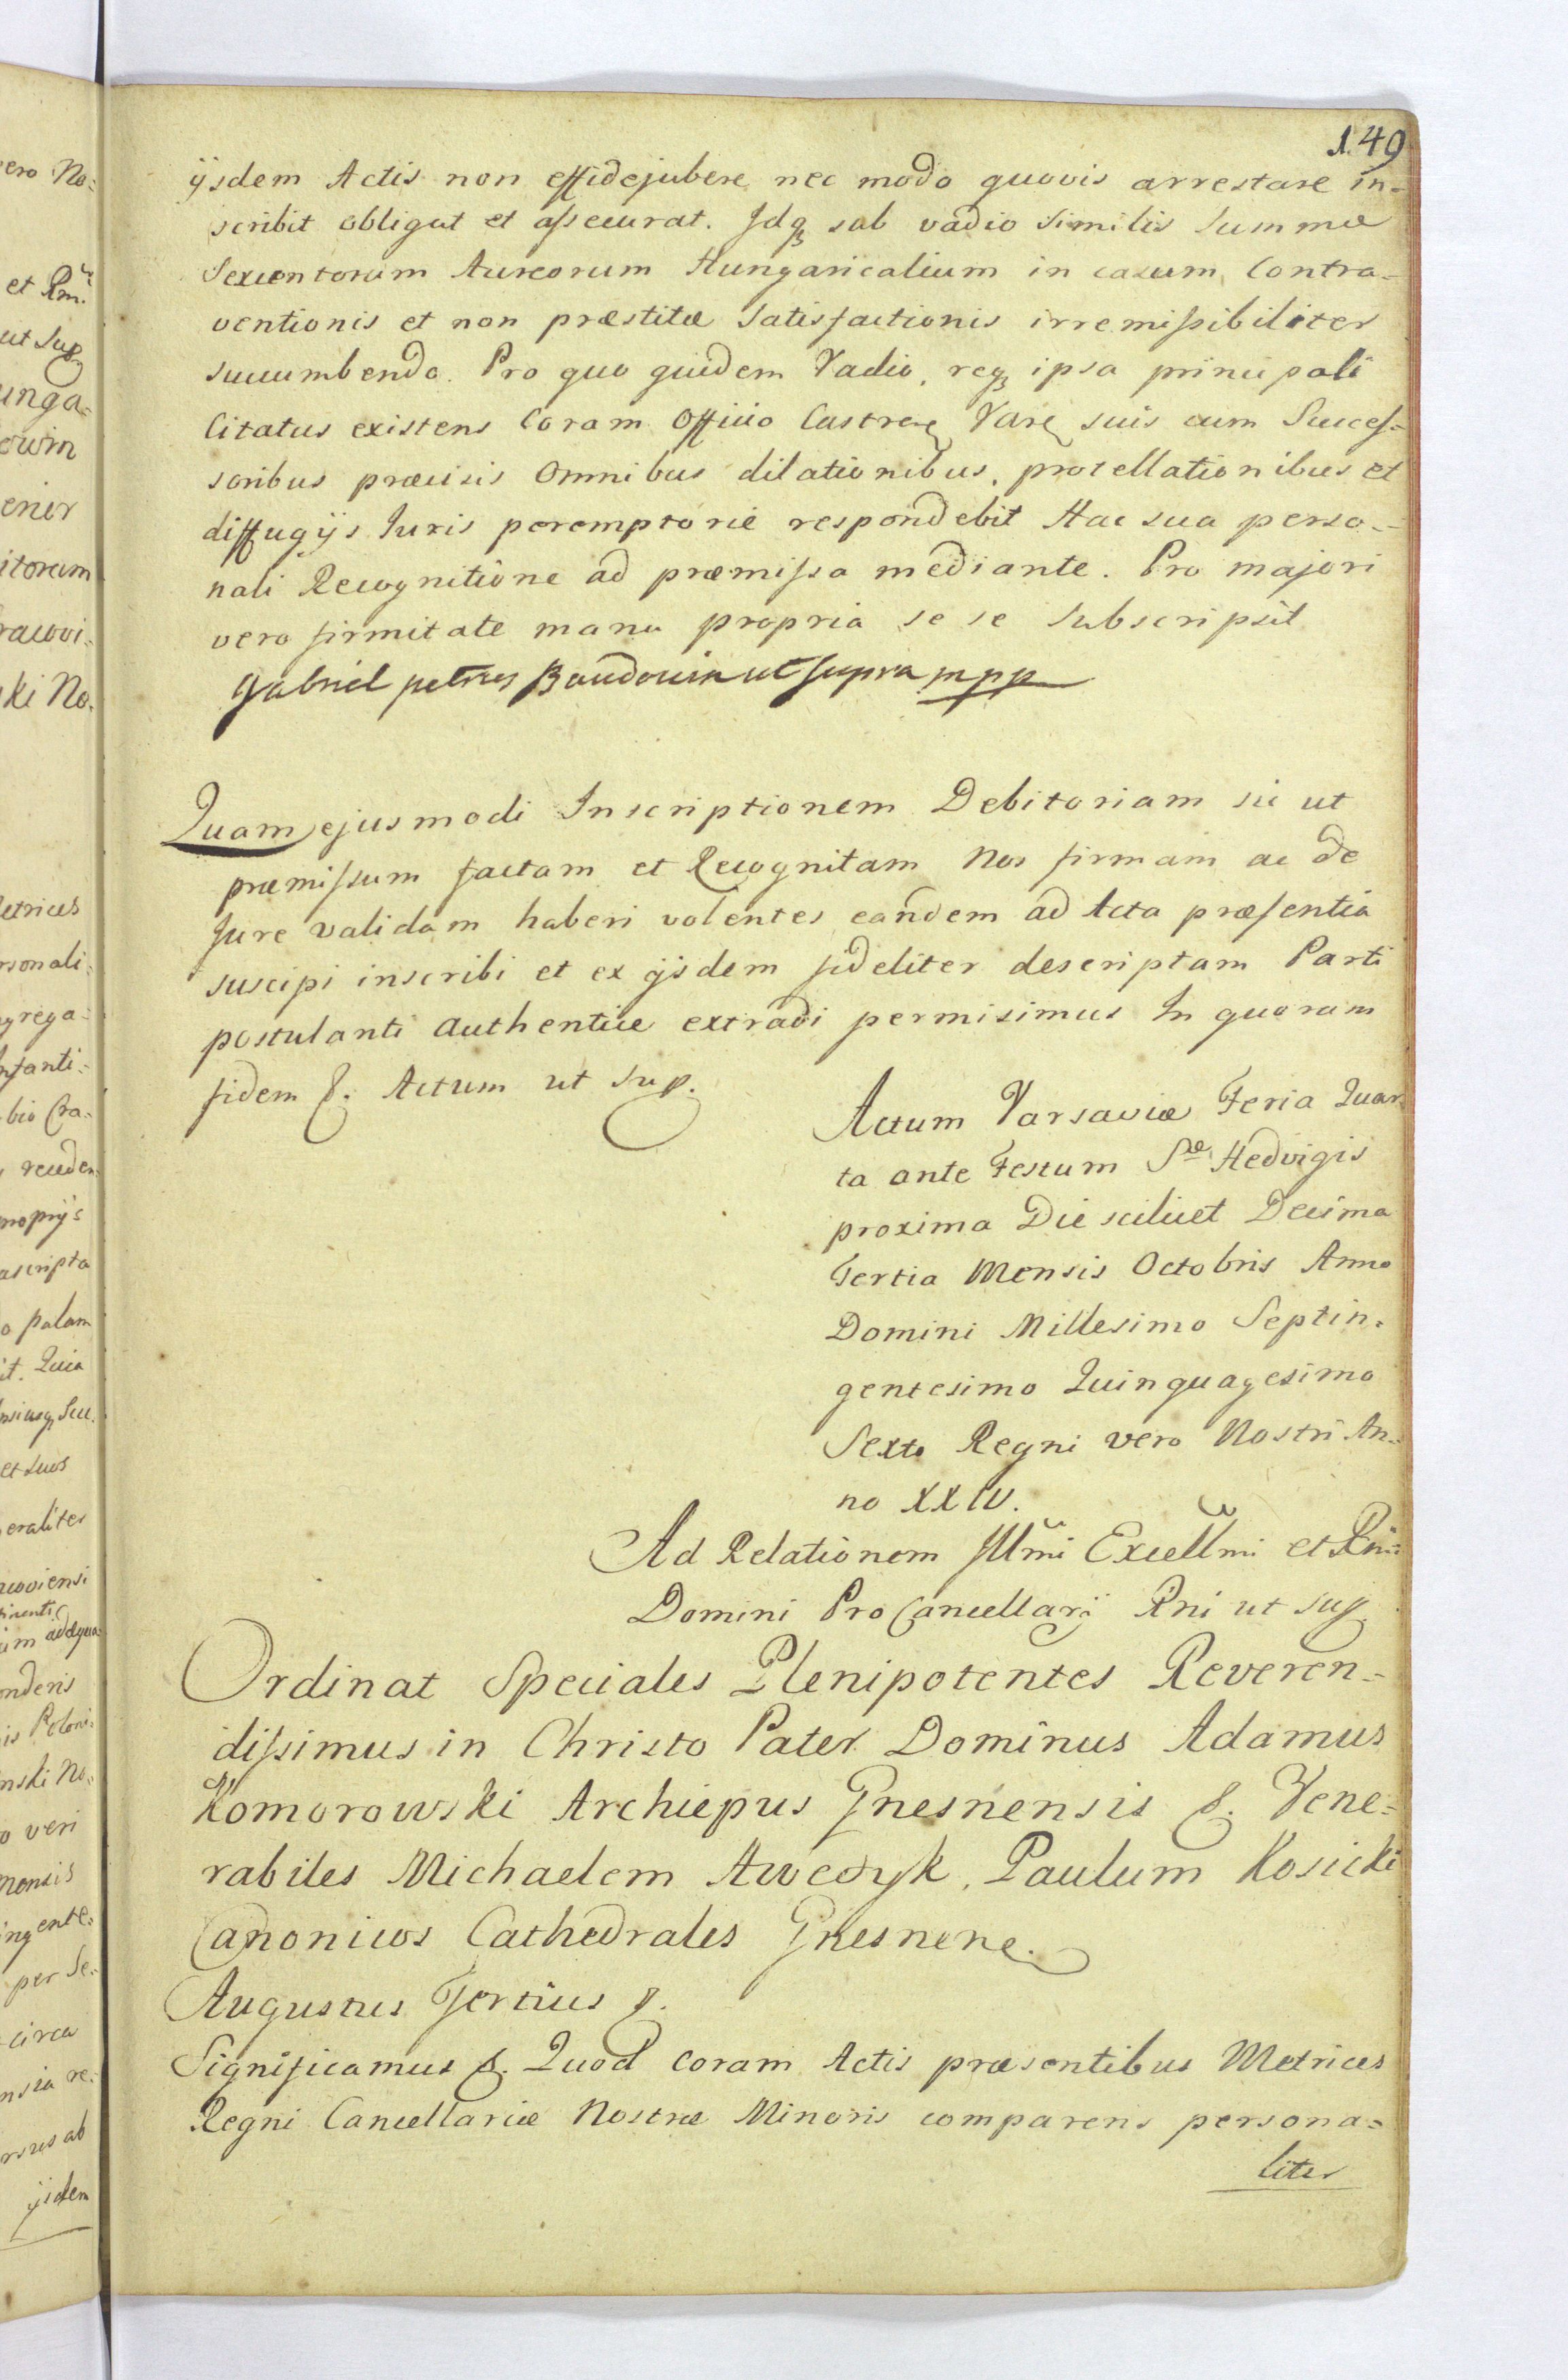 149
ijsdem Actis non effidejubere nec modo quovis arrestare in-
scribit obligat et assecurat. Idq3 sub vadio similis summæ
Sexcentorum Aureorum Hungaricalium in casum Contra-
ventionis et non præstitæ satisfactionis irremissibiliter
succumbendo. Pro quo quidem Vadio, req3 ipsa principali
Citatus existens Coram Officio Castren Varn suis cum Succes-
soribus præcisis Omnibus dilationibus, protellationibus et
diffugijs Iuris peremptorie respondebit Hac sua perso-
nali Recognitione ad præmissa mediante. Pro majori
vero firmitate manu propria se se subscripsit
Gabriel petrus Baudouin ut supra mpp
Quam ejusmodi Inscriptionem Debitoriam sic ut
præmissum factam et Recognitam Nos firmam ac de
Jure validam haberi volentes eandem ad Acta præsentia
suscipi inscribi et ex ijsdem fideliter descriptam Parti
postulanti authentice extradi permisimus In quorum
fidem &. Actum ut sup.
Actum Varsaviæ Feria Quar
ta ante Festum Sæ Hedvigis
proxima Die scilicet Decima
Tertia Mensis Octobris Anno
Domini Millesimo Septin-
gentesimo Quinquagesimo
Sexto Regni vero Nostri An-
no XXIV.
Ad Relationem Illmi Excellmi et Rmi
Domini ProCancellarij Rni ut sup
Ordinat Speciales Plenipotentes Reveren-
dissimus in Christo Pater Dominus Adamus
Komorowski Archiepus Gnesnensis &. Vene-
rabiles Michaelem Awedyk, Paulum Kosicki
Canonicos Cathedrales Gnesnene.
Augustus Tertius &.
Significamus &. Quod coram Actis præsentibus Metrices
Regni Cancellariæ Nostræ Minoris comparens persona-
liter